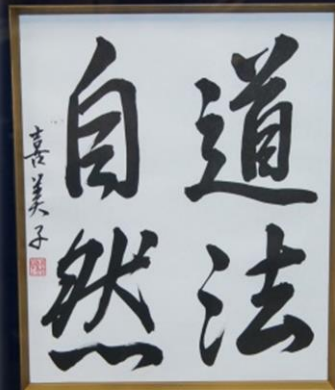 道法
自然
喜美子